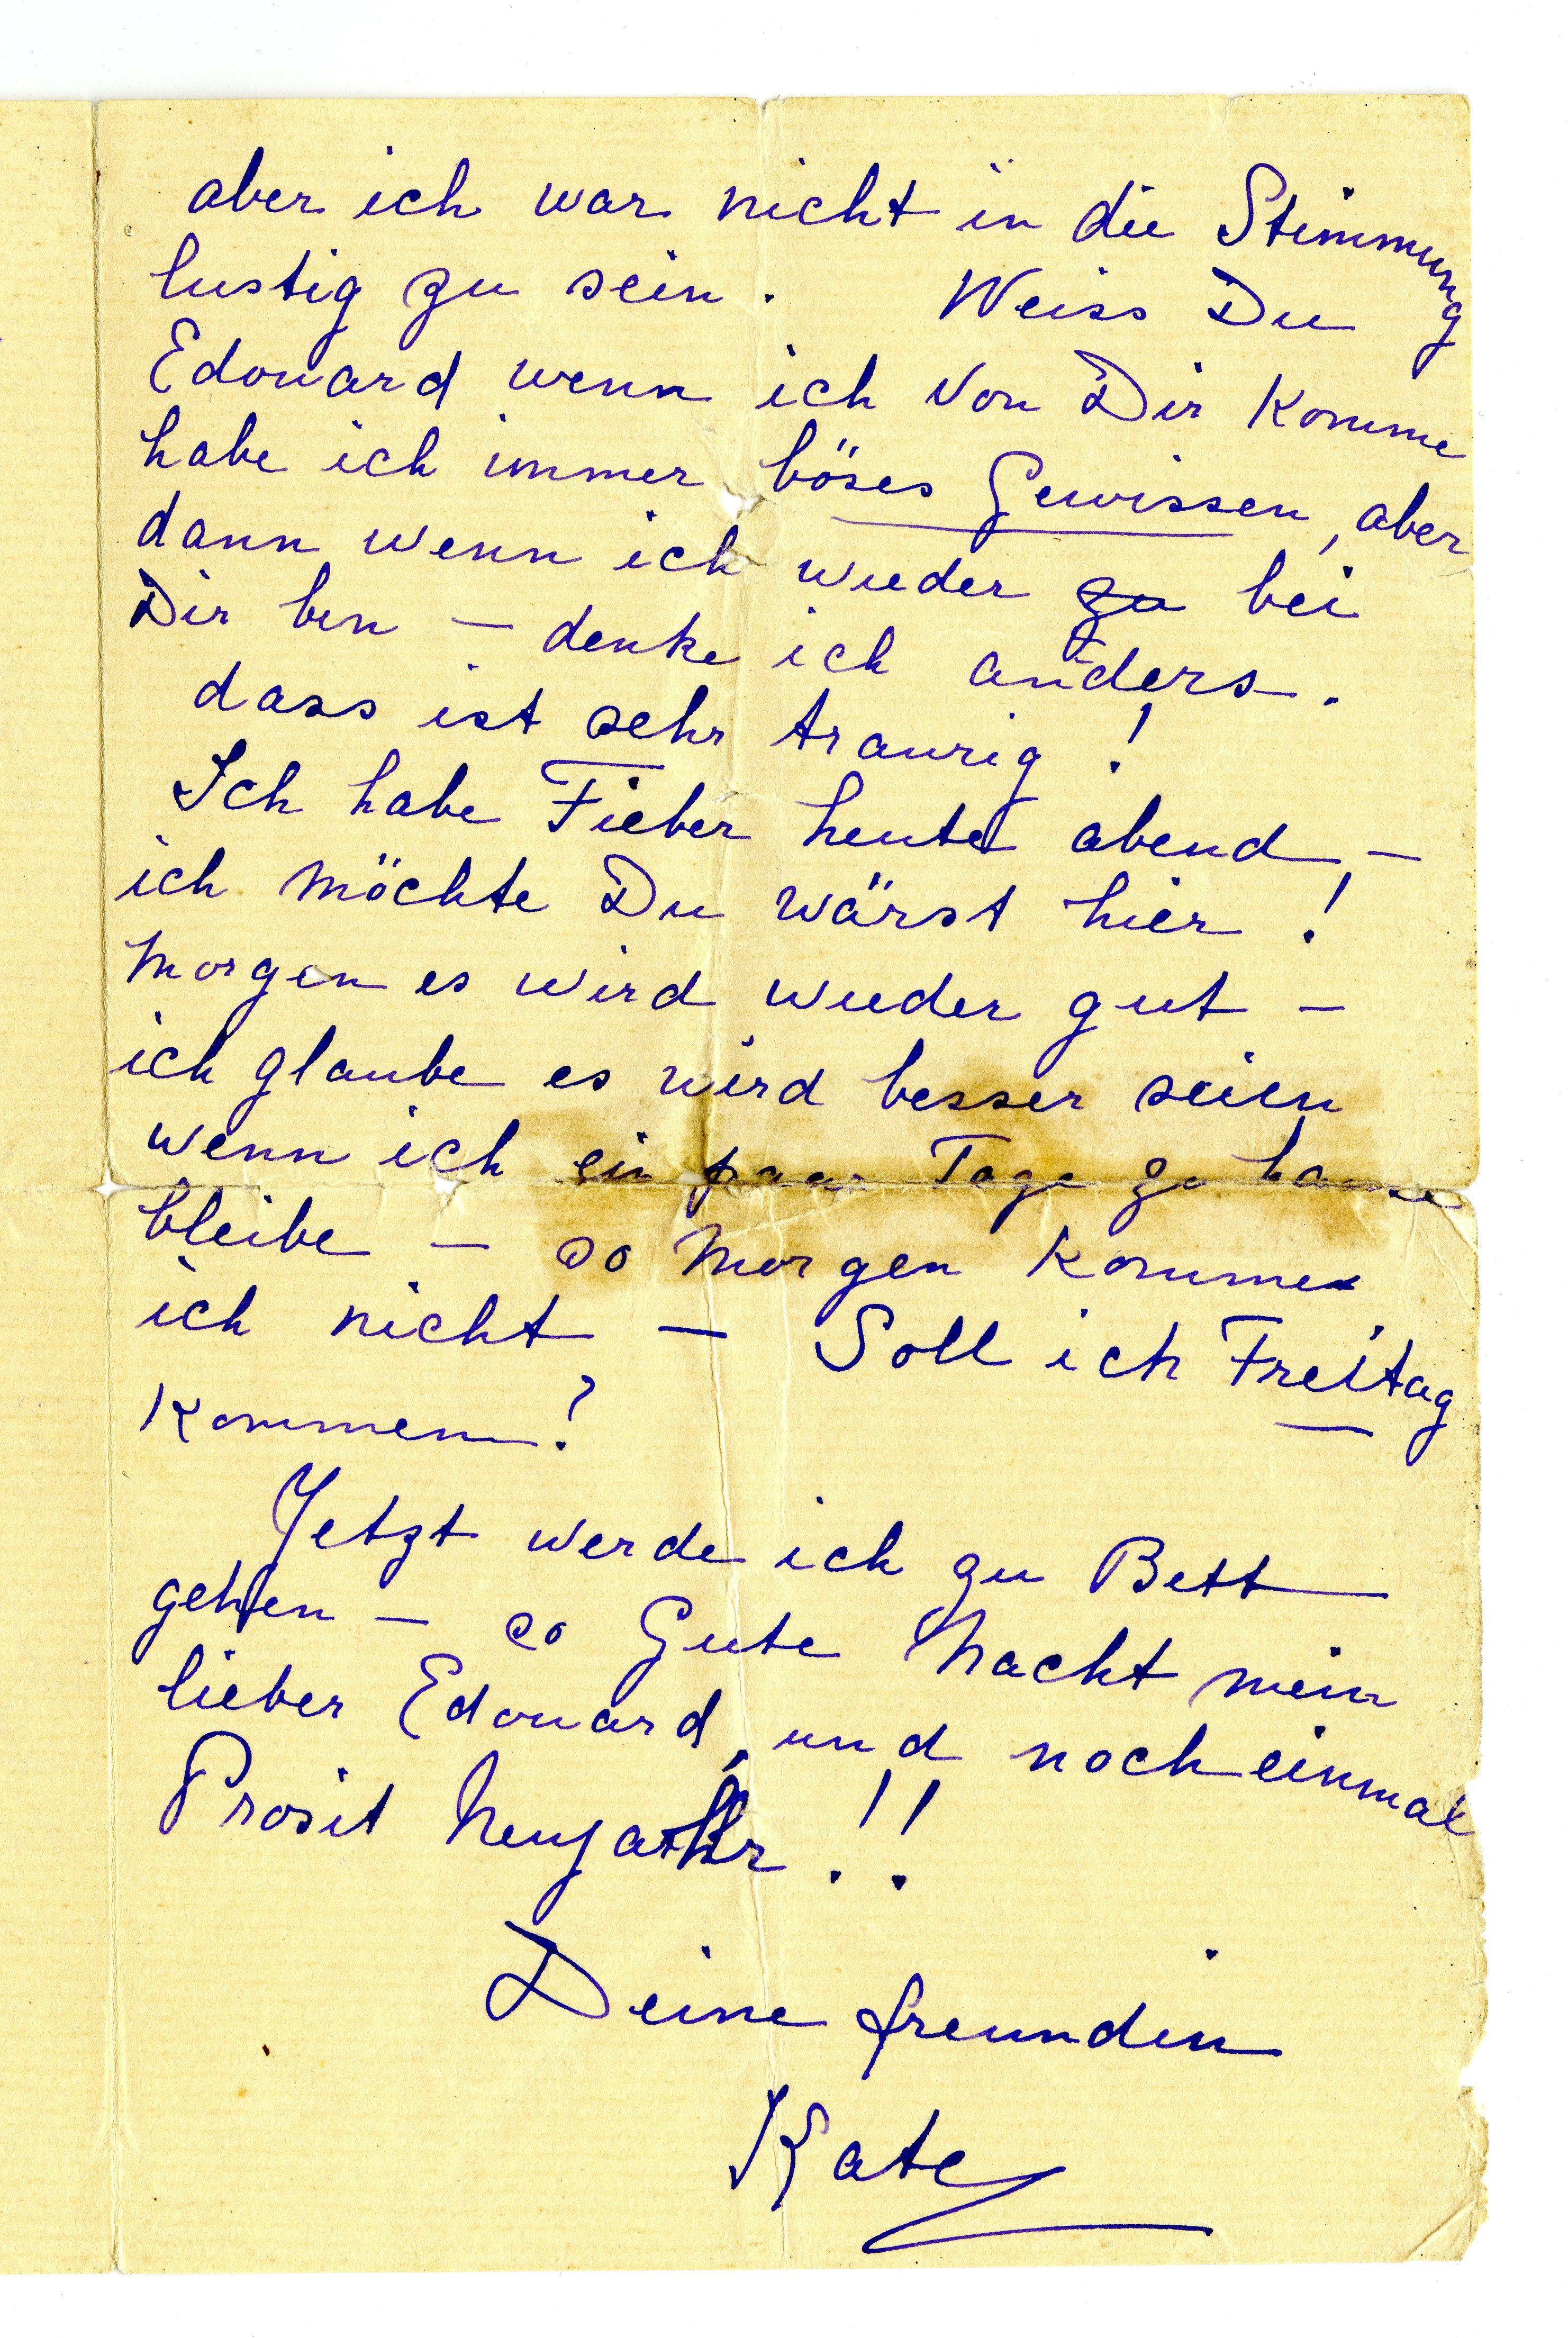 aber ich war nicht in die Stimmung
lustig zu sein. Weiss Du
Edouard wenn ich von Dir komme
habe ich immer böses Gewissen, aber
dann wenn ich wieder zu bei
Dir bin – denke ich anders.
dass ist sehr traurig!
Ich habe Fieber heute abend –
ich möchte Du wärst hier!
Morgen es wird wieder gut –
ich glaube es wird besser seien
wenn ich ein paar Tage zu hause
bleibe – so Morgen komme
ich nicht – Soll ich Freitag
kommen?
Jetzt werde ich zu Bett
gehen – so Gute Nacht mein
lieber Edouard, und noch einmal
Prosit Neujahr!!
Deine freundin
Kate